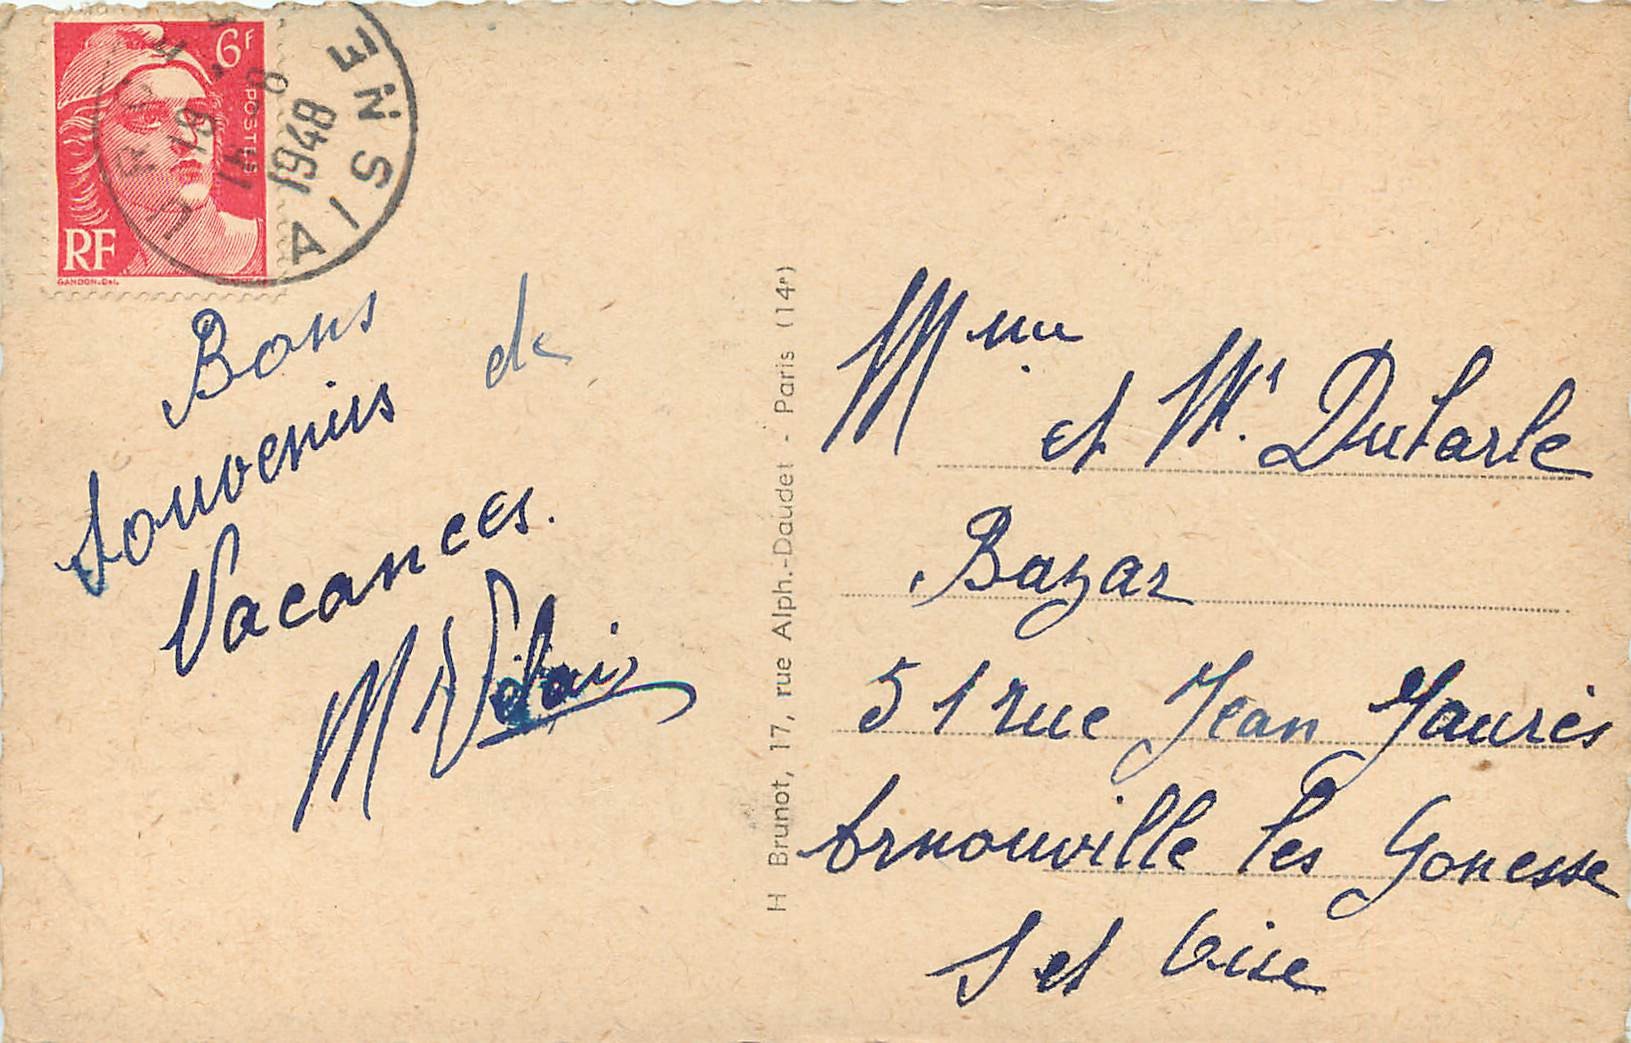 6F
POSTES
RF
GANDON.Del.
1948
AISNE
Bons
souvenirs de
Vacances.
Mme
et Mr. Dutarle
Bazar
51 rue Jean Jaurès
Arnouville les Gonesse
S et Oise
H Brunot, 17, rue Alph.-Daudet - Paris (14e)